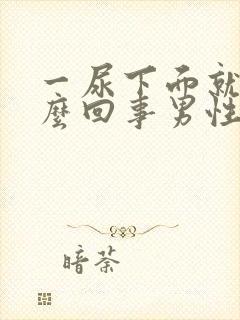 一尿下面就
麽回事男性
暗荼